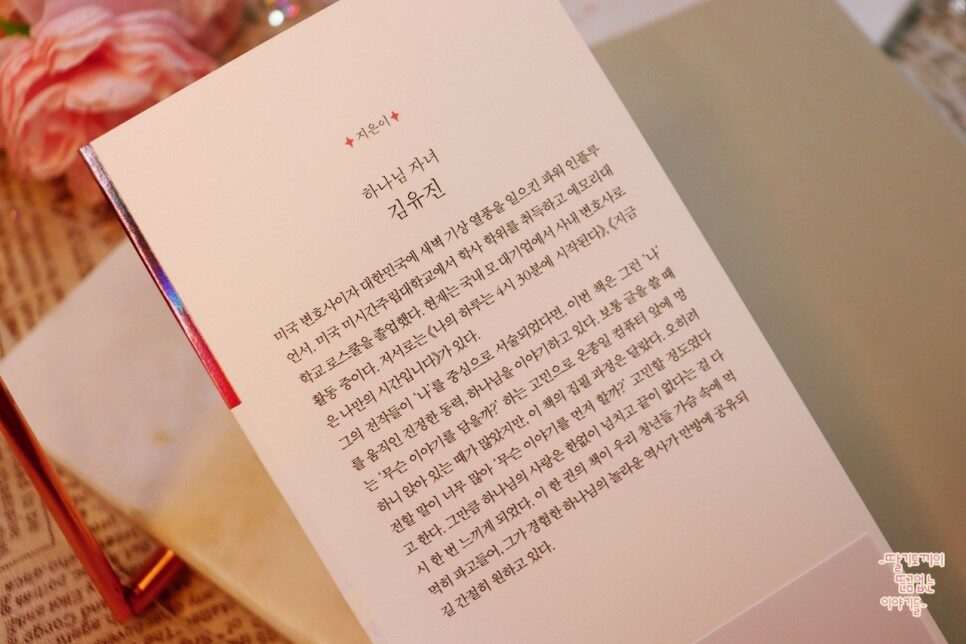 지은이
하나님 자녀
김유진
미국 변호사이자 대한민국에 새벽 기상 열풍을 일으킨 파워 인플루
언서. 미국 미시간주립대학교에서 학사 학위를 취득하고 에모리대
학교 로스쿨을 졸업했다. 현재는 국내 모 대기업에서 사내 변호사로
활동 중이다. 저서로는 《나의 하루는 4시 30분에 시작된다》, 《지금
은 나만의 시간입니다》가 있다.
그의 전작들이 ‘나’를 중심으로 서술되었다면, 이번 책은 그런 ‘나’
를 움직인 진정한 동력, 하나님을 이야기하고 있다. 보통 글을 쓸 때
는 ‘무슨 이야기를 담을까?’ 하는 고민으로 온종일 컴퓨터 앞에 멍
하니 앉아 있는 때가 많았지만, 이 책의 집필 과정은 달랐다. 오히려
전할 말이 너무 많아 ‘무슨 이야기를 먼저 할까?’ 고민할 정도였다
고 한다. 그만큼 하나님의 사랑은 한없이 넘치고 끝이 없다는 걸 다
시 한 번 느끼게 되었다. 이 한 권의 책이 우리 청년들 가슴 속에 먹
먹히 파고들어, 그가 경험한 하나님의 놀라운 역사가 만방에 공유되
길 간절히 원하고 있다.
딸기토끼의
뜬금없는
이야기들